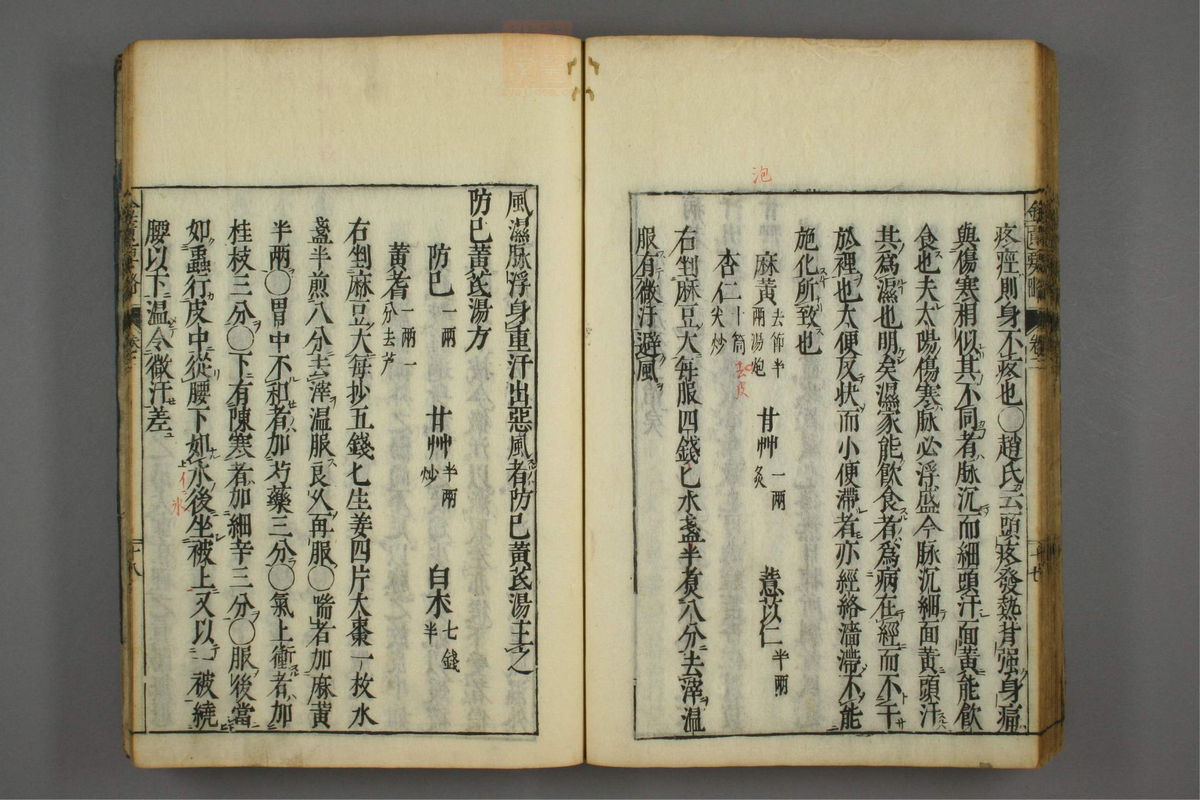 疼痓則身不疼也○趙氏云頭疼發熱背强身痛
與傷寒相似其不同者脉沉而細頭汗面黄能飲
食也夫太陽傷寒脉必浮盛今脉沉細面黄頭汗
其為濕也明矣濕家能飲食者為病在經而不干
於裡也大便反状而小便滯者亦經絡濇滯不能
施化所致也
泡
麻黄去節半兩湯炮 甘艸一兩炙 薏苡仁半兩
杏仁十箇尖炒
去皮
右剉麻豆大每服四錢匕水盞半煑八分去滓温
服有微汗避風
風濕脉浮身重汗出惡風者防己黄茋湯主之
防己黄茋湯方
防己一兩 甘艸半兩炒 白朮七錢半
黄耆一兩一分去芦
右剉麻豆大每抄五錢匕生姜四片大棗一枚水
盞半煎八分去滓温服良久再服○喘者加麻黄
半兩○胃中不和者加芍藥三分○氣上衝者加
桂枝三分○下有陳寒者加細辛三分○服後當
如蟲行皮中從腰下如氷後坐被上又以一被繞
上作氷
腰以下温令微汗差